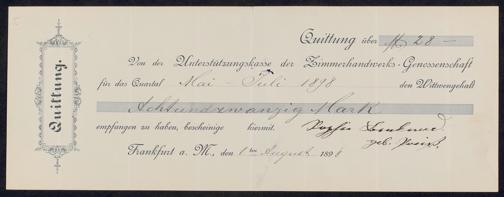 Quittung.
Quittung über M 28 –
Von der Unterstützungskasse der Zimmerhandwerks-Genossenschaft
für das Quartal Mai – Juli 1898 den Wittwengehalt
Achtundzwanzig Mark
empfangen zu haben, bescheinige hiermit. Sophie
geb.
Frankfurt a. M., den 1ten August 1898